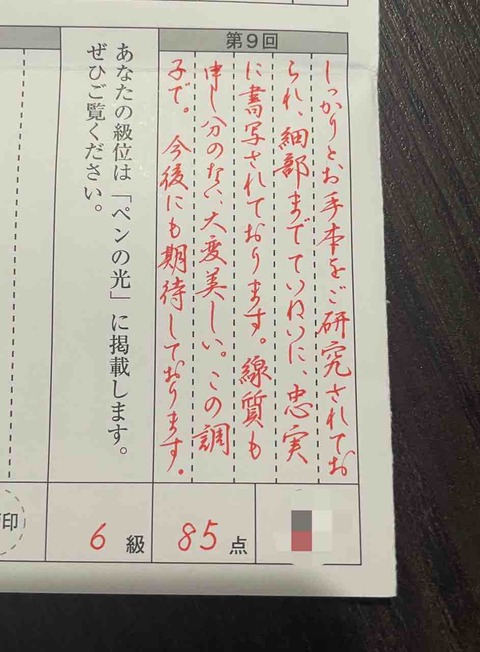 第9回
しっかりと、お手本をご研究されてお
られ、細部までていねいに、忠実
に書写されております。線質も
申し分のない、大変美しい。この調
子で。今後にも期待しております。
85点
あなたの級位は「ペンの光」に掲載します。
ぜひご覧ください。
6級
印